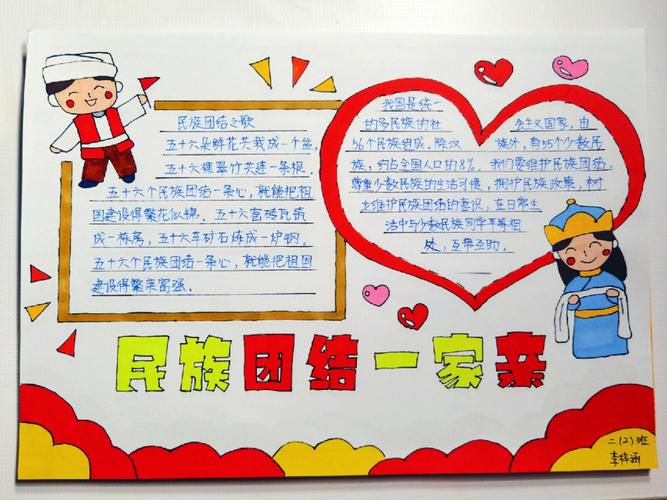 民族团结之歌
五十六朵鲜花共栽成一个盆,
五十六棵翠竹共连一条根.
五十六个民族团结一条心,就能把祖
国建设得繁花似锦.五十六窑砖瓦筑
成一栋房,五十六车矿石炼成一炉钢.
五十六个民族团结一条心,就能把祖国
建设得繁荣富强.
我国是统一
的多民族的社 会主义国家,由
56个民族组成.除汉 族外,有55个少数民
族,约占全国人口的8%.我们要维护民族团结
尊重少数民族的生活习惯,拥护民族政策,树
立维护民族团结的意识,在日常生
活中与少数民族同学平等相
处,互帮互助.
民族团结一家亲
二(2)班
李梓涵